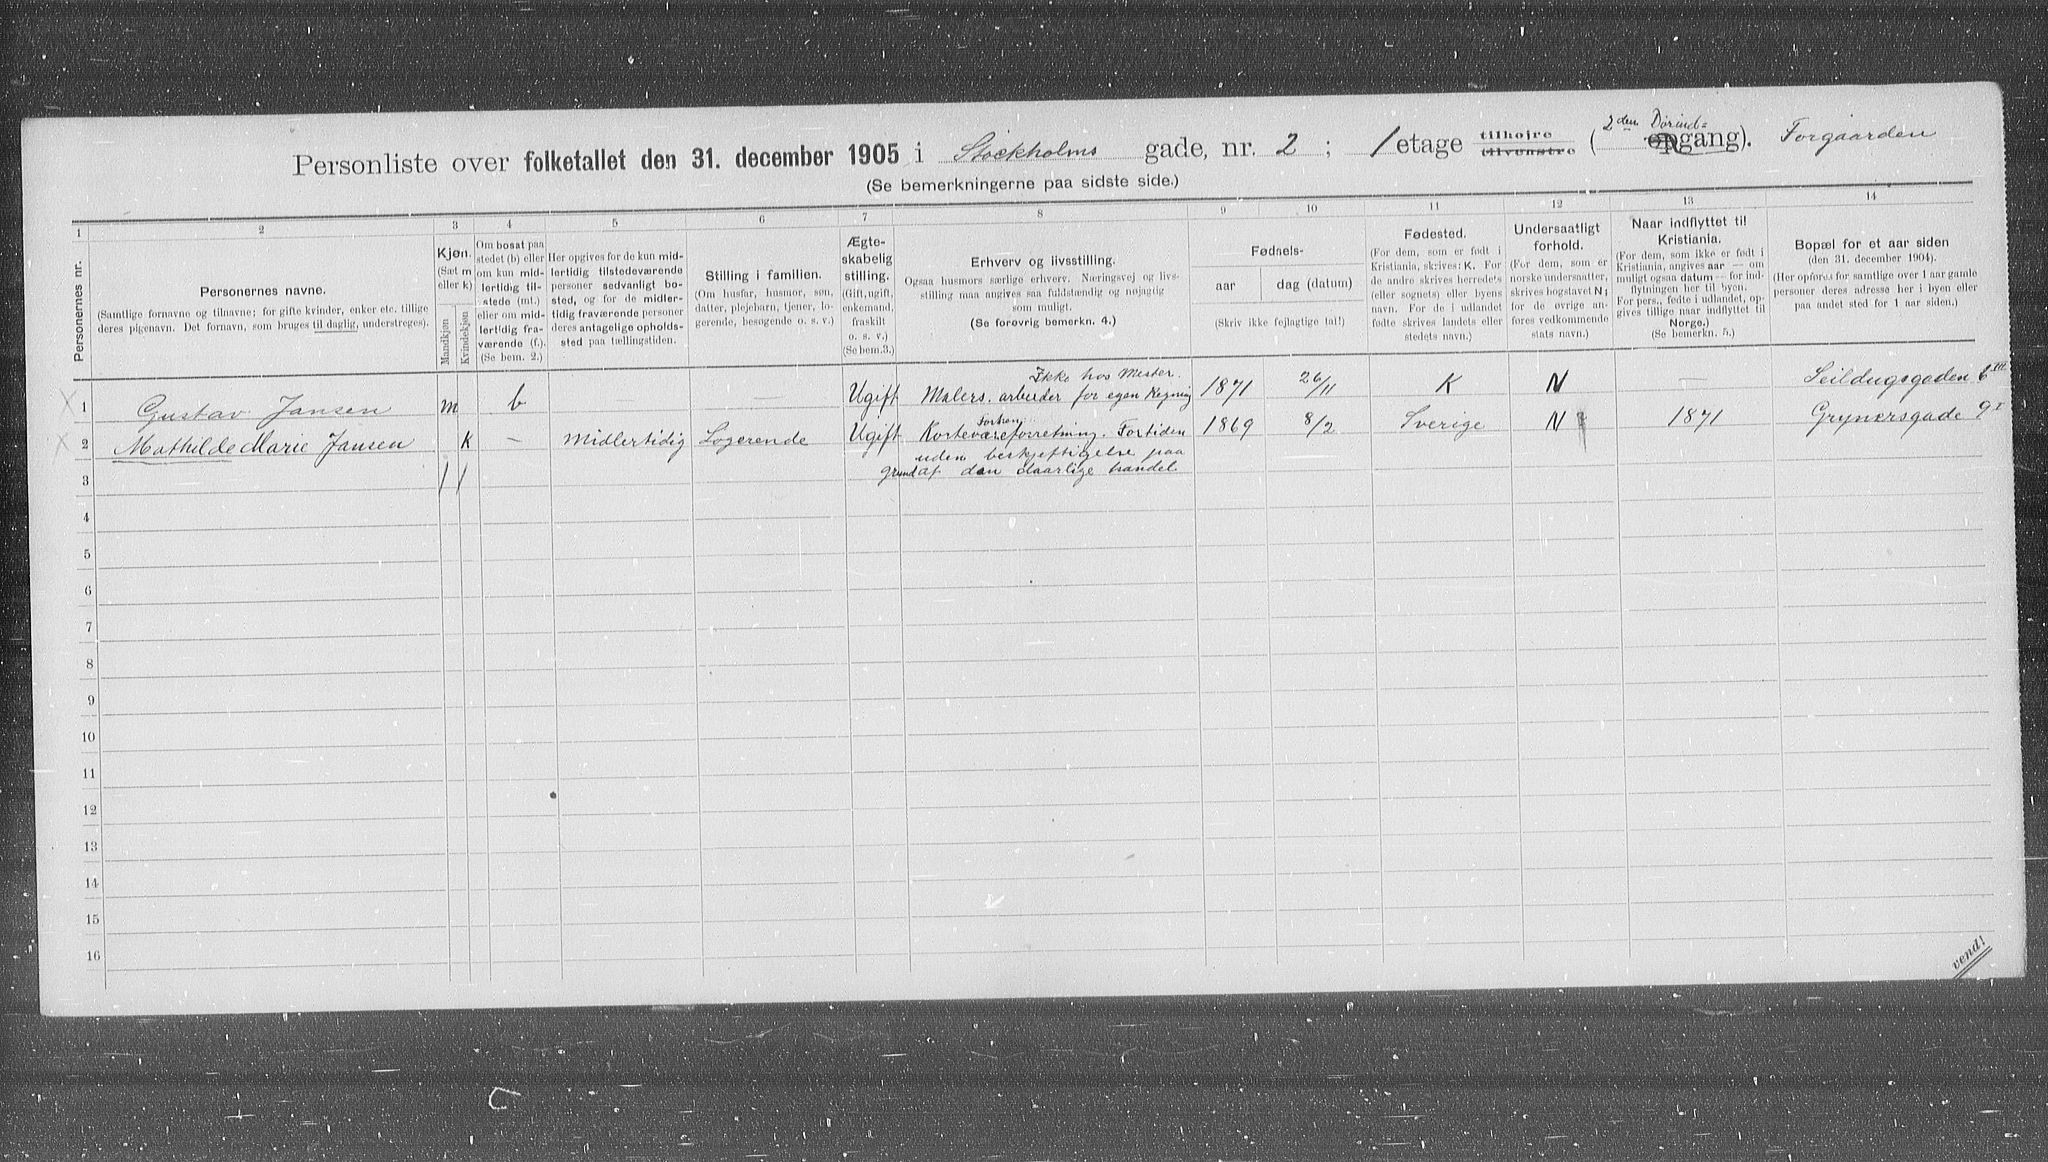 Personliste over folketallet den 31. december 1905 i Stockholms gade, nr. 2 ; 1 etage tilhøjre tilvenstre (2den Dørind= opgang). Forgaarden
(Se bemerkningerne paa sidste side.)
1 2 3 4 5 6 7 8 9 10 11 12 13 14
Personernes nr.
Personernes navne.
(Samtlige fornavne og tilnavne; for gifte kvinder, enker etc. tillige
deres pigenavn. Det fornavn, som bruges til daglig, understreges).
Kjøn.
(Sæt m
eller k)
Mandkjøn
Kvindekjøn
Om bosat paa
stedet (b) eller
om kun mid-
lertidig til-
stede (mt.)
eller om mid-
lertidig fra-
værende (f.).
(Se bem. 2.)
Her opgives for de kun mid-
lertidig tilstedeværende
personer sedvanligt bo-
sted, og for de midler-
tidig fraværende personer
deres antagelige opholds-
sted paa tællingstiden.
Stilling i familien.
(Om husfar, husmor, søn,
datter, plejebarn, tjener, lo-
gerende, besøgende o. s. v.)
Ægte-
skabelig
stilling.
(Gift, ugift,
enkemand,
fraskilt
o. s. v.)
(Se bem.3.)
Erhverv og livsstilling.
Ogsaa husmors særlige erhverv. Næringsvej og livs-
stilling maa angives saa fuldstændig og nøjagtig
som muligt.
(Se forøvrig bemerkn. 4.)
Fødsels-
aar
dag (datum)
(Skriv ikke fejlagtige tal!)
Fødested.
(For dem, som er født i
Kristiania, skrives: K. For
de andre skrives herredets
(eller sognets) eller byens
navn. For de i udlandet
fødte skrives landets eller
stedets navn.)
Undersaatligt
forhold.
(For dem, som er
norske undersaatter,
skrives bogstavet N;
for de øvrige an-
føres vedkommende
stats navn.)
Naar indflyttet til
Kristiania.
(For dem, som ikke er født i
Kristiania, angives aar — om
muligt ogsaa datum — for ind-
flytningen her til byen.
For pers., fødte i udlandet, op-
gives tillige naar indflyttet til
Norge.)
(Se bemerkn. 5.)
Bopæl for et aar siden
(den 31. december 1904).
(Her opføres for samtlige over 1 aar gamle
personer deres adresse her i byen eller
paa andet sted for 1 aar siden.)
Ikke hos Mester.
1 Gustav Jansen m b — — Ugift Malers. arbeider for egen Regning 1871 26/11 K N — Seildugsgaden 6 III
Forhen
2 Mathilde Marie Jansen K — Midlertidig Logerende Ugift Kortevareforretning. Fortiden 1869 8/2 Sverige N 1871 Grynersgade 9 I
uden beskjeftigelse paa
3 grund af den daarlige handel
4
5
6
7
8
9
10
11
12
13
14
15
16
vend!